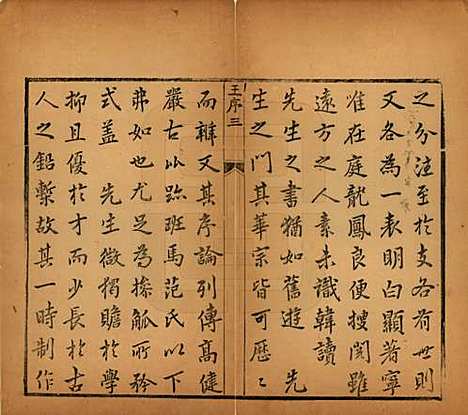 之分注至於支各有世則
又各為一表明白顯著寧
准在庭龍鳳良便搜閱雖
遠方之人素未識韓讀
先生之書猶如舊遊 先
生之門其華宗皆可歷〻
王序三
而辨又其序論列傳高健
嚴古以跡班馬范氏以下
弗如也尤足為操觚所矜
式蓋 先生微獨贍於學
抑且優於才而少長於古
人之鉛槧故其一時制作